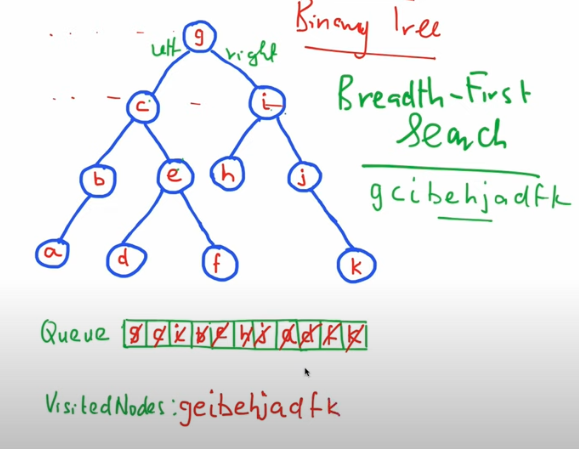 Binary Tree
g
left right
c i
Breadth-First
Search
b e h j
gcibehjadfk
a d f k
Queue g c i b e h j a d f k
Visited Nodes: geibehjadfk